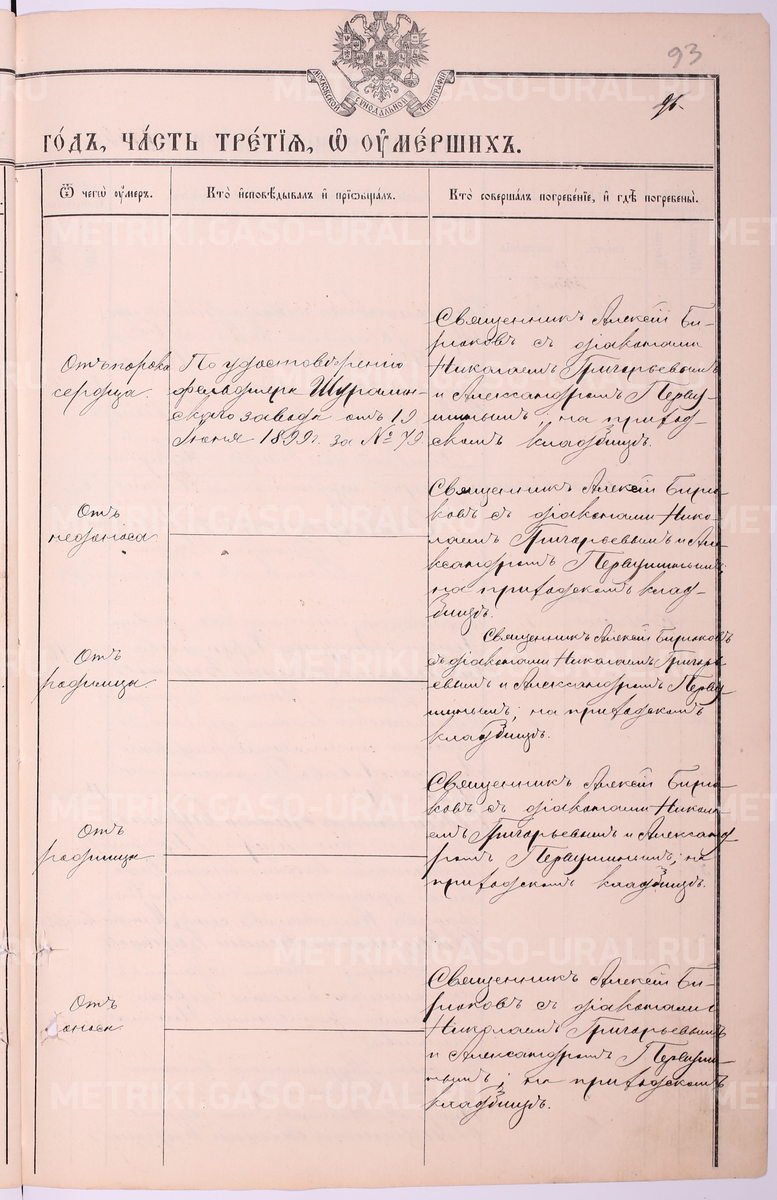 93
МОСКОВСКОЙ СѴНОДАЛЬНОЙ ТИПОГРАФІИ
95.
ГО́ДЪ, ЧА́СТЬ ТРЕ́ТІЯ, Ѿ ОУМЕ́РШИХЪ.
Ѿ чегѡ̀ оу́меръ.
Кто̀ и҆сповѣ́дывалъ и҆ прїѡбща́лъ.
Кто̀ соверша́лъ погребе́нїе, и҆ гдѣ̀ погребены̀.
Отъ порока
сердца.
По удостовѣренію
фельдшера Шуралин-
скаго завода отъ 19
Іюня 1899 г. за № 79.
Священникъ Алексій Би-
рюковъ съ діаконами
Николаемъ Григорьевымъ
и Александромъ Перву-
шинымъ, на приход-
скомъ кладбищѣ.
Отъ
недоноса
Священникъ Алексій Бирю-
ковъ съ діаконами Нико-
лаемъ Григорьевымъ и Але-
ксандромъ Первушинымъ;
на приходскомъ клад-
бищѣ.
Отъ
родимца.
Священникъ Алексій Бирюковъ
съ діаконами Николаемъ Григорь-
евымъ и Александромъ Перву-
шинымъ; на приходскомъ
кладбищѣ.
Отъ
родимца
Священникъ Алексій Бирю-
ковъ съ діаконами Никола-
емъ Григорьевымъ и Александ-
ромъ Первушинымъ; на
приходскомъ кладбищѣ.
Отъ
поноса
Священникъ Алексій Би-
рюковъ съ діаконами
Николаемъ Григорьевымъ
и Александромъ Первуши-
нымъ; на приходскомъ
кладбищѣ.
METRIKI.GASO-URAL.RU